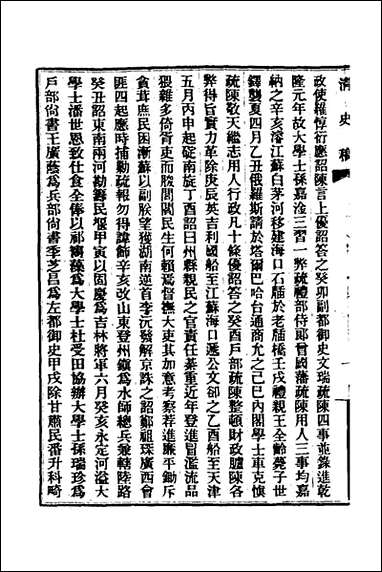 清史稿
政使權惇衍應詔陳言上優詔答之癸卯副都御史文瑞疏陳四事並錄進乾
隆元年故大學士孫嘉淦三習一弊疏禮部侍郎曾國藩疏陳用人三事均嘉
納之辛亥濬江蘇白茅河移建海口石牐於老牐橋壬戌禮親王全齡薨子世
鐸襲夏四月乙丑俄羅斯請於塔爾巴哈台通商允之己巳內閣學士車克慎
疏陳敬天繼志用人行政凡十條優詔答之癸酉戶部疏陳整頓財政臚陳各
弊得旨實力革除庚辰英吉利國船至江蘇海口遞公文卻之乙酉船至天津
五月丙申起碇南旋丁酉詔曰州縣親民之官責任綦重近年登進冒濫流品
猥雜多倚胥吏而朘閭閻民生何賴焉督撫大吏其加意考察荐進廉平鋤斥
貪茸庶民困漸蘇以副朕望獲湖南逆首李沅發解京誅之詔鄭祖琛廣西會
匪四起應時捕勦疏報勿得諱飾辛亥改山東登州鎮為水師總兵兼轄陸路
癸丑詔東南兩河勘籌民堰甲寅以固慶為吉林將軍六月癸亥永定河溢大
學士潘世恩致仕食全俸以祁寯藻為大學士杜受田協辦大學士孫瑞珍為
戶部尚書王廣蔭為兵部尚書季芝昌為左都御史甲戌除甘肅民番升科畸